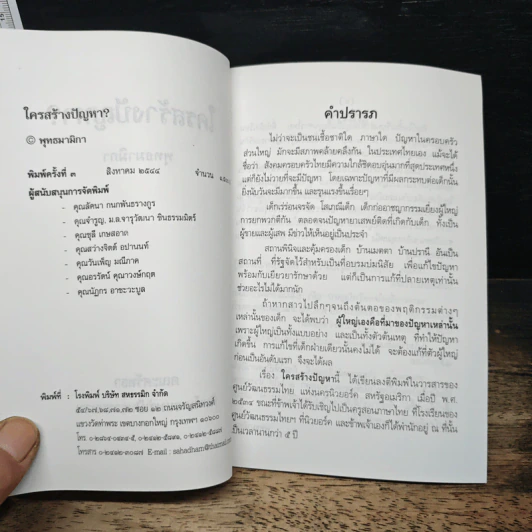 ใครสร้างปัญหา?
© พุทธมามิกา
พิมพ์ครั้งที่ ๓ สิงหาคม ๒๕๔๔ จำนวน
ผู้สนับสนุนการจัดพิมพ์
- คุณลัคนา กนกพันธรางกูร
- คุณจำรูญ, ม.ล.จารุวัฒนา ชินธรรมมิตร์
- คุณชุลี เกษสอาด
- คุณสว่างจิตต์ อปานนท์
- คุณวันเพ็ญ มณีภาค
- คุณอรรัตน์ คุณาวงษ์กฤต
- คุณนัฏกร อาชะวะบูล
พิมพ์ที่ : โรงพิมพ์ บริษัท สหธรรมิก จำกัด
๕๔/๖๗,๖๘,๗๑,๗๒ ซอย ๑๒ ถนนจรัญสนิทวงศ์
แขวงวัดท่าพระ เขตบางกอกใหญ่ กรุงเทพฯ ๑๐๖๐๐
โทร
โทรสาร ๐-๒๔๑๒-๓๐๘๗ E-mail :
คำปรารภ
ไม่ว่าจะเป็นชนเชื้อชาติใด ภาษาใด ปัญหาในครอบครัว
ส่วนใหญ่ มักจะมีสภาพคล้ายคลึงกัน ในประเทศไทยเอง แม้จะได้
ชื่อว่า สังคมครอบครัวไทยมีความใกล้ชิดอบอุ่นมากที่สุดประเทศหนึ่ง
แต่ก็ยังไม่วายที่จะมีปัญหา โดยเฉพาะปัญหาที่มีผลกระทบต่อเด็กนั้น
ยิ่งนับวันจะมีมากขึ้น และรุนแรงขึ้นเรื่อยๆ
เด็กเร่ร่อนจรจัด โสเภณีเด็ก เด็กก่ออาชญากรรมเยี่ยงผู้ใหญ่
การยกพวกตีกัน ตลอดจนปัญหายาเสพย์ติดที่เกิดกับเด็ก ทั้งเป็น
ผู้ขายและผู้เสพ มีข่าวให้เห็นอยู่เป็นประจำ
สถานพินิจและคุ้มครองเด็ก บ้านเมตตา บ้านปรานี อันเป็น
สถานที่ ที่รัฐจัดไว้สำหรับเป็นที่อบรมบ่มนิสัย เพื่อแก้ไขปัญหา
พร้อมกับเยียวยารักษาด้วย แต่ก็เป็นการแก้ที่ปลายเหตุเท่านั้น
ช่วยอะไรไม่ได้มากนัก
ถ้าหากสาวไปลึกๆจนถึงต้นตอของพฤติกรรมต่างๆ
เหล่านั้นของเด็ก จะได้พบว่า ผู้ใหญ่เองคือที่มาของปัญหาเหล่านั้น
เพราะผู้ใหญ่เป็นทั้งแบบอย่าง และเป็นทั้งตัวต้นเหตุ ที่ทำให้ปัญหา
เกิดขึ้น การแก้ไขที่เด็กฝ่ายเดียวนั้นคงไม่ได้ จะต้องแก้ที่ตัวผู้ใหญ่
ก่อนเป็นอันดับแรก จึงจะได้ผล
เรื่อง ใครสร้างปัญหานี้ ได้เขียนลงตีพิมพ์ในวารสารของ
ศูนย์วัฒนธรรมไทย แห่งนครนิวยอร์ค สหรัฐอเมริกา เมื่อปี พ.ศ.
๒๕๓๔ ขณะที่ข้าพเจ้าได้รับเชิญไปเป็นครูสอนภาษาไทย ที่โรงเรียนของ
ศูนย์วัฒนธรรมไทยฯ ที่นิวยอร์ค และข้าพเจ้าเองก็ได้พำนักอยู่ ณ ที่นั้น
เป็นเวลานานกว่า ๕ ปี